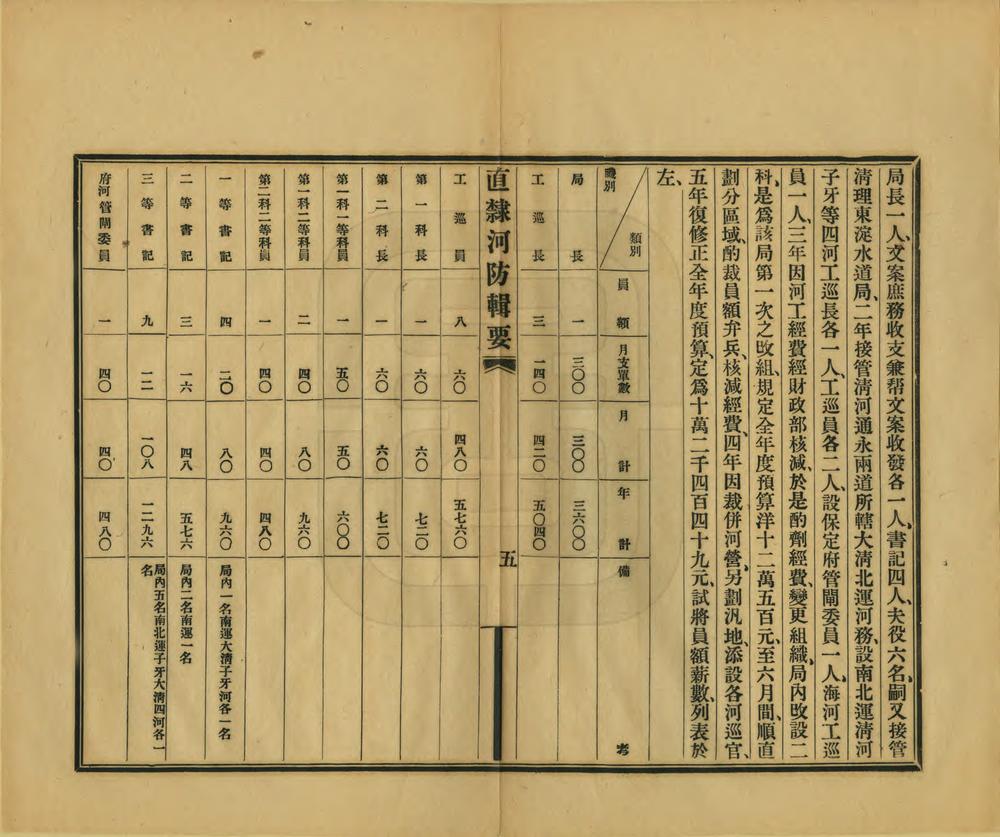 局長一人、文案庶務收支兼帮文案收發各一人、書記四人、夫役六名、嗣又接管
清理東淀水道局、二年接管清河通永兩道所轄大清北運河務、設南北運清河
子牙等四河工巡長各一人、工巡員各二人、設保定府管閘委員一人、海河工巡
員一人、三年因河工經費經財政部核減、於是酌劑經費、變更組織、局內改設二
科、是爲該局第一次之改組、規定全年度預算洋十二萬五百元、至六月間、順直
劃分區域、酌裁員額弁兵、核減經費、四年因裁併河營、另劃汎地、添設各河巡官、
五年復修正全年度預算、定爲十萬二千四百四十九元、試將員額薪數、列表於
左、
職別 類別 員額 月支單數 月計 年計 備考
局長 一 三〇〇 三〇〇 三六〇〇
工巡長 三 一四〇 四二〇 五〇四〇
直隸河防輯要 五
工巡員 八 六〇 四八〇 五七六〇
第一科長 一 六〇 六〇 七二〇
第二科長 一 六〇 六〇 七二〇
第一科一等科員 一 五〇 五〇 六〇〇
第一科二等科員 二 四〇 八〇 九六〇
第二科二等科員 一 四〇 四〇 四八〇
一等書記 四 二〇 八〇 九六〇 局內一名南運大清子牙河各一名
二等書記 三 一六 四八 五七六 局內二名南運一名
三等書記 九 一二 一〇八 一二九六 局內五名南北運子牙大清四河各一
名
府河管閘委員 一 四〇 四〇 四八〇